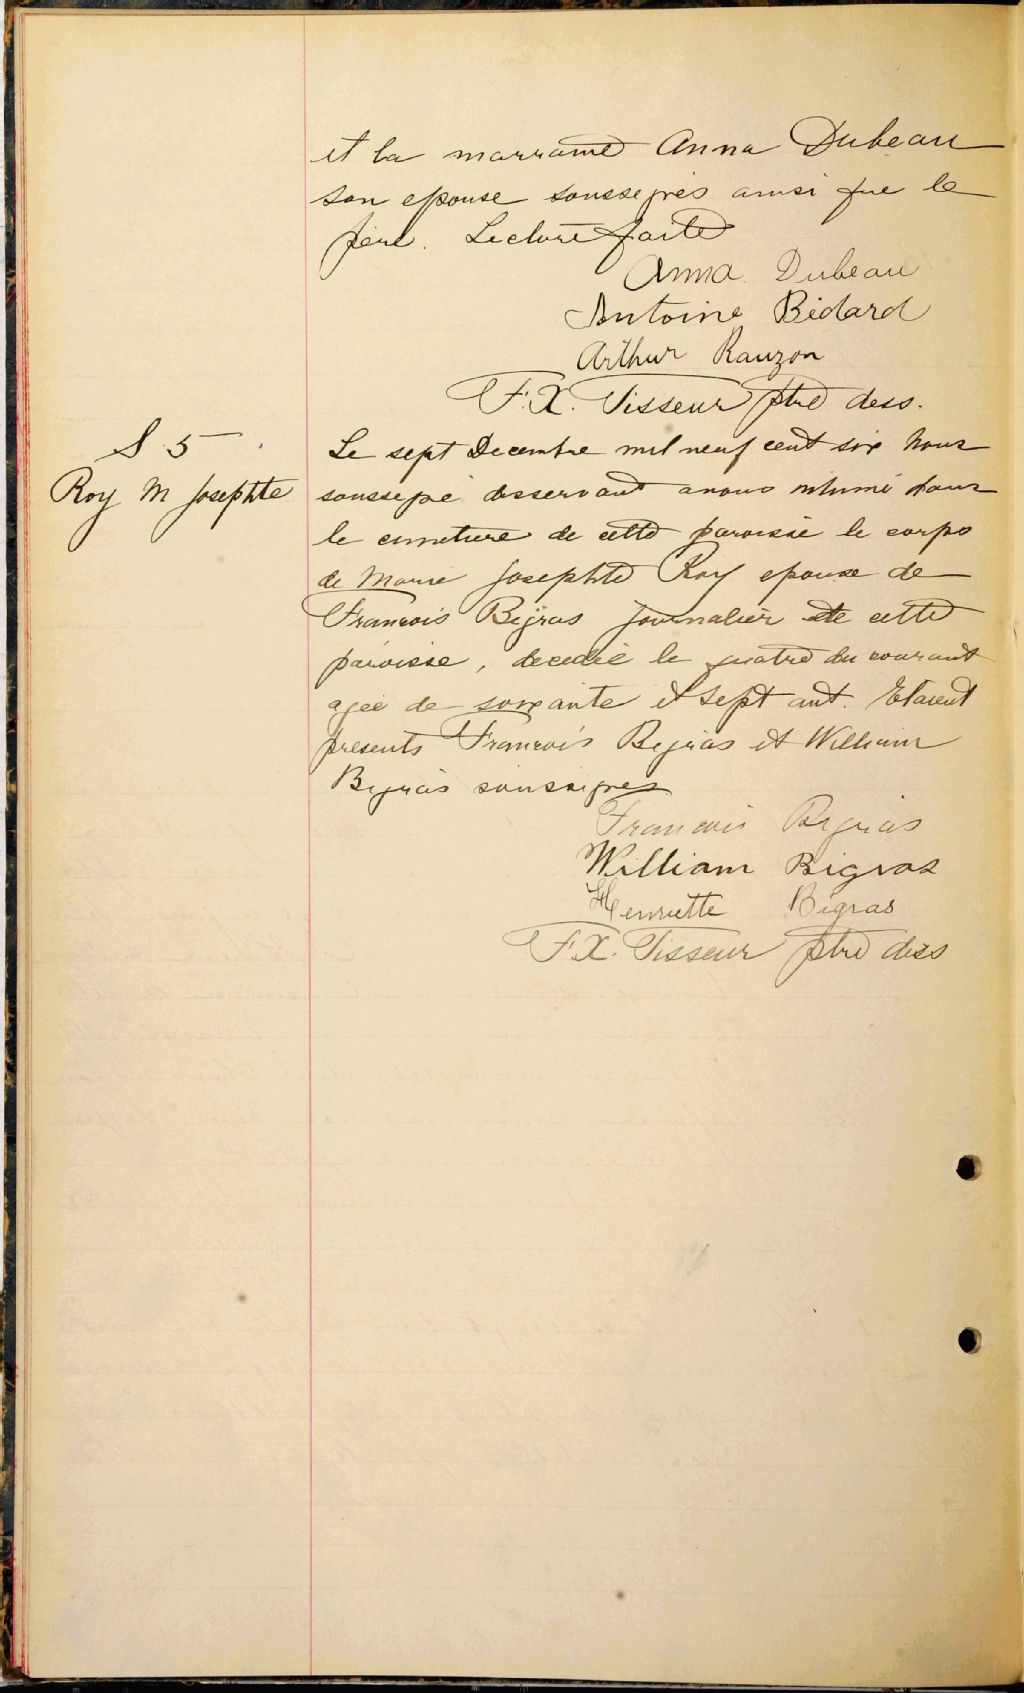 et la marraine Anna Dubeau
son epouse soussignés ainsi que le
père. Lecture faite
Anna Dubeau
Antoine Bédard
Arthur Rauzon
F.X. Tisseur ptre dess.
S 5
Roy M Josephte
Le sept Decembre mil neuf cent six Nous
soussigné desservant avons inhumé dans
le cimetiere de cette paroisse le corps
de Marie Josephte Roy epouse de
Francois Bigras journalier de cette
paroisse, decedée le quatre du courant
agée de soixante et sept ant. Etaient
presents Francois Bigras et William
Bigras soussignes
Francois Bigras
William Bigras
Henriette Bigras
F.X. Tisseur ptre dess